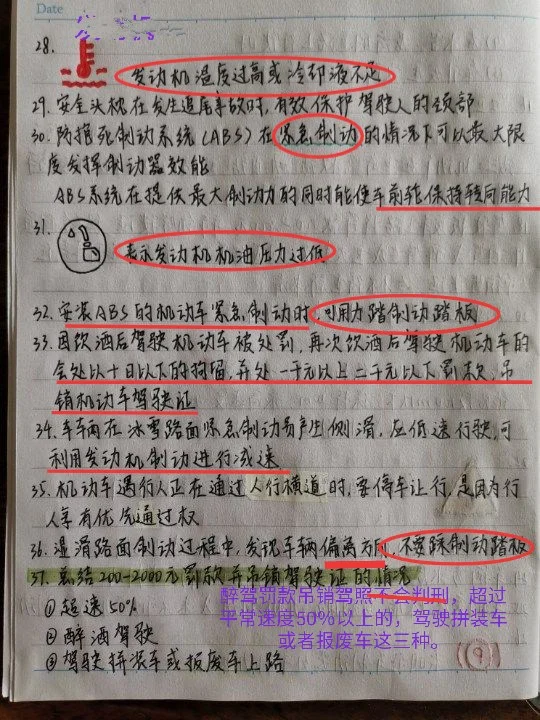 Date
28.
发动机温度过高或冷却液不足
29. 安全头枕在发生追尾事故时,有效保护驾驶人的颈部
30. 防抱死制动系统(ABS)在紧急制动的情况下可以最大限
度发挥制动器效能
ABS系统在提供最大制动力的同时能使车前轮保持转向能力
31.
表示发动机机油压力过低
32. 安装ABS的机动车紧急制动时,可用力踏制动踏板
33. 因饮酒后驾驶机动车被处罚,再次饮酒后驾驶机动车的
会处以十日以下的拘留,并处一千元以上二千元以下罚款,吊
销机动车驾驶证
34. 车车两在冰雪路面紧急制动易产生侧滑,应低速行驶,可
利用发动机制动进行减速
35. 机动车遇行人正在通过人行横道时,要停车让行,是因为行
人享有优先通过权
36. 湿滑路面制动过程中,发现车辆偏离方向,不要踩制动踏板
37. 总结200-2000元罚款并吊销驾驶证的情况
醉驾罚款吊销驾照不会判刑，超过
平常速度50%以上的，驾驶拼装车
或者报废车这三种。
①超速50%
②醉酒驾驶
③驾驶拼装车或报废车上路
9